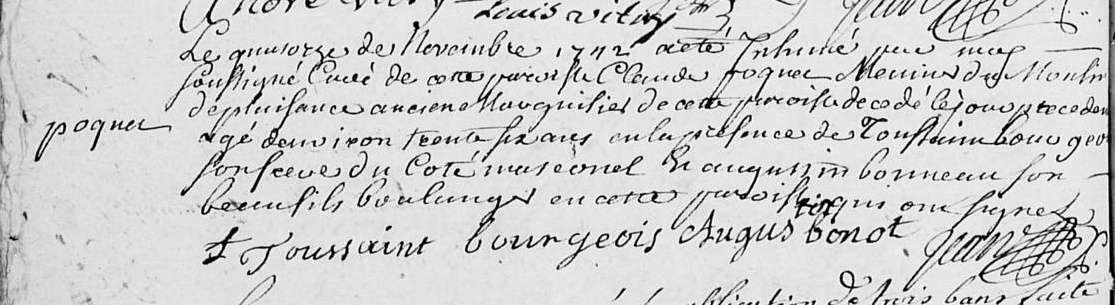 Louis vitry
Le quatorze de Novembre 1742 a eté Inhumé par moy
soussigné Curé de cette paroisse Claude poquet Meunier du Moulin
de plaisance ancien Marguilier de cette paroisse decedé le jour precedent
poquet
agé d'environ trente six ans en la presence de Toussaint bourgeois
son frere du Coté maternel Et augustin bonneau son
beaufils boulanger en cette paroisse qui ont signez
Toussaint bourgeois Augustin bonot Jean
publication de trois bans faite